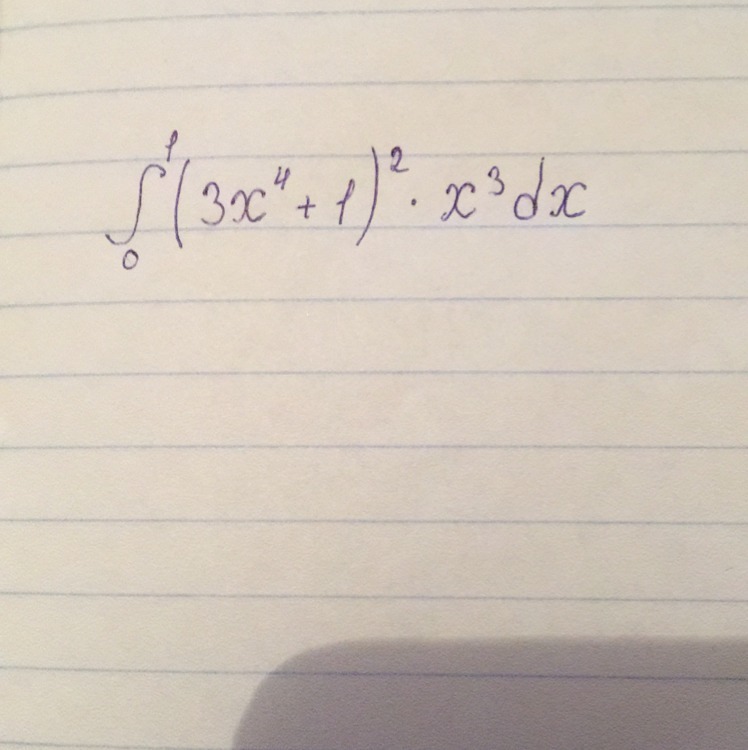 ∫₀¹ (3x⁴ + 1)² · x³ dx